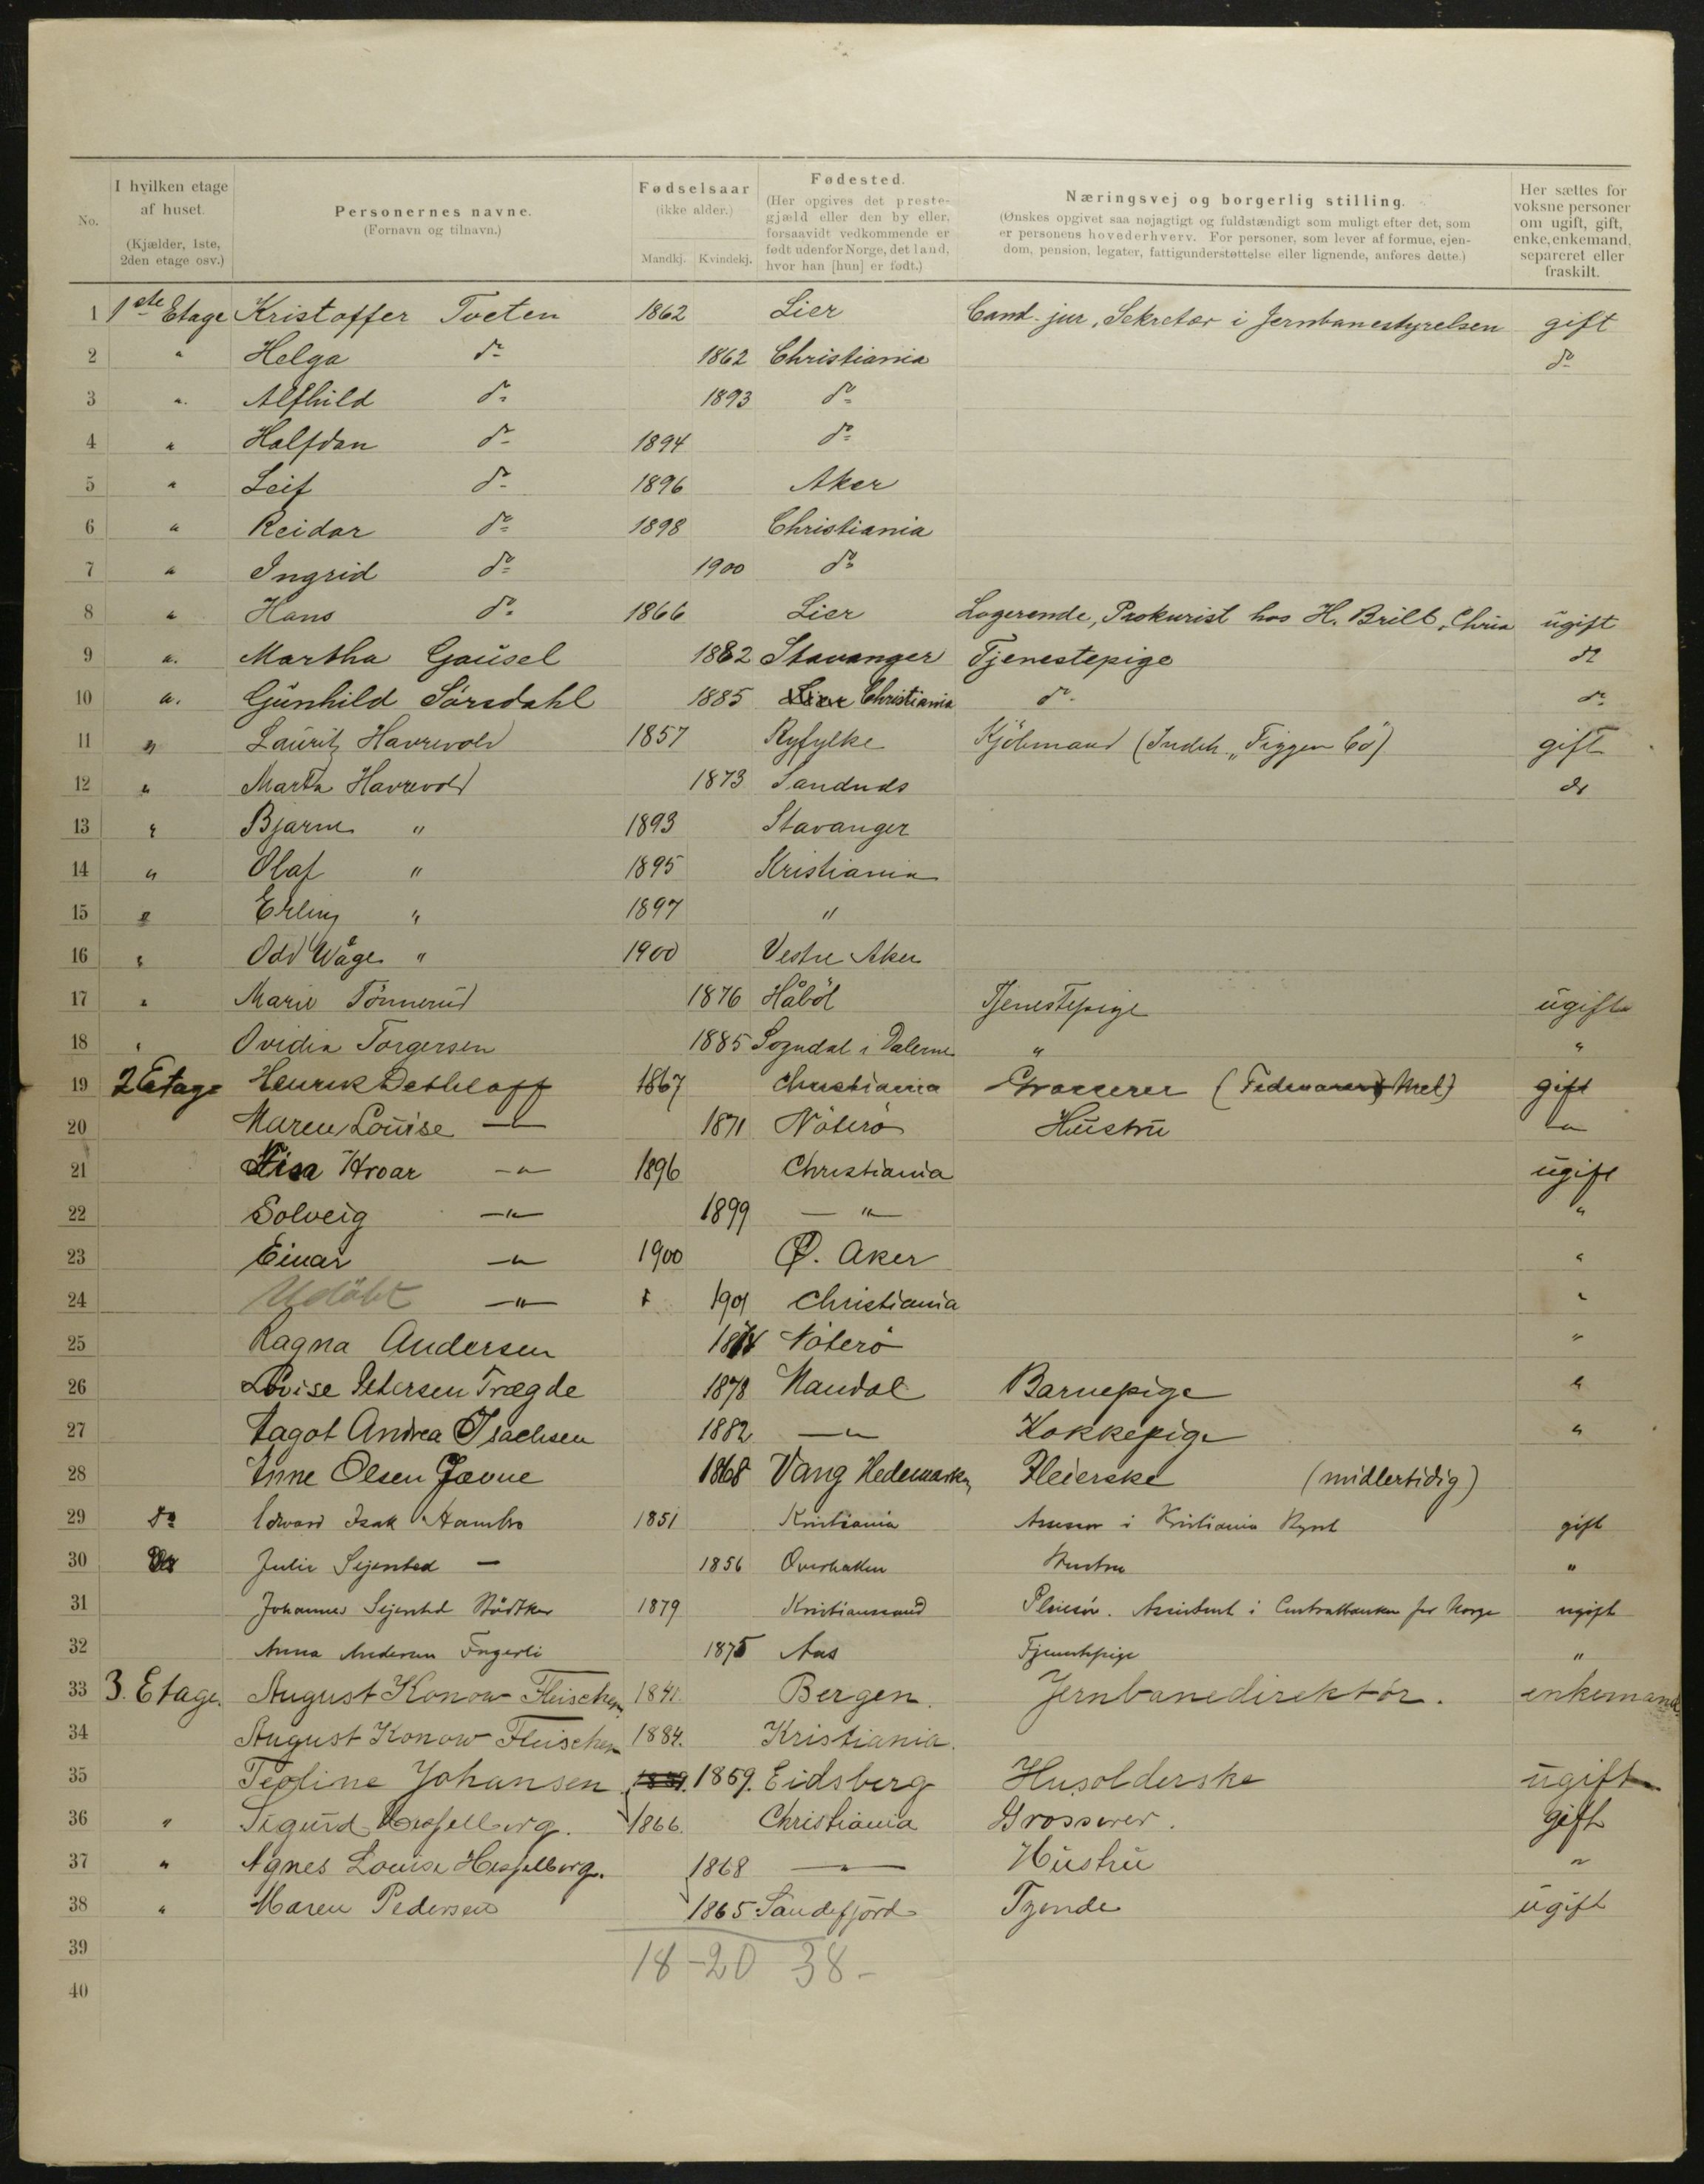 No.
I hvilken etage af huset. (Kjælder, 1ste, 2den etage osv.)
Personernes navne. (Fornavn og tilnavn.)
Fødselsaar (ikke alder.) Mandkj. Kvindekj.
Fødested. (Her opgives det prestegjæld eller den by eller, forsaavidt vedkommende er født udenfor Norge, det land, hvor han [hun] er født.)
Næringsvej og borgerlig stilling. (Ønskes opgivet saa nøjagtigt og fuldstændigt som muligt efter det, som er personens hovederhverv. For personer, som lever af formue, ejendom, pension, legater, fattigunderstøttelse eller lignende, anføres dette.)
Her sættes for voksne personer om ugift, gift, enke, enkemand, separeret eller fraskilt.
1 1ste Etage Kristoffer Tveten 1862 Lier Cand. jur, Sekretær i Jernbanestyrelsen gift
2 " Helga do 1862 Christiania do
3 " Alfhild do 1893 do
4 " Halfdan do 1894 do
5 " Leif do 1896 Aker
6 " Reidar do 1898 Christiania
7 " Ingrid do 1900 do
8 " Hans do 1866 Lier Logerende, Prokurist hos H. Brill, Chria ugift
9 " Martha Gausel 1882 Stavanger Tjenestepige do
10 " Gunhild Sørsdahl 1885 Lier Christiania do do
11 " Lauritz Havrevold 1857 Ryfylke Kjöbmand (Indeh. "Figgen Co) gift
12 " Marta Havrevold 1873 do
13 " Bjarne " 1893 Stavanger
14 " Olaf " 1895 Kristiania
15 " Erling " 1897 "
16 " Odd Wåge " 1900 Vestre Aker
17 " Marie Tönnerud 1876 Håböl Tjenestepige ugift
18 " Ovidia Torgersen 1885 Sogndal i Dalerne " "
19 2 Etage Henrik Dethloff 1867 Christiania Grosserer (Fedevarer & Mel) gift
20 Maren Louise —"— 1871 Nöterö Hustru —"—
21 Hroar —"— 1896 Christiania ugift
22 Solveig —"— 1899 —"— "
23 Einar —"— 1900 Ø. Aker "
24 Udöbt —"— 1901 Christiania "
25 Ragna Andersen Nöterö "
26 Lovise Petersen Trægde 1878 Mandal Barnepige "
27 Aagot Andrea Isachsen 1882 —"— Kokkepige "
28 Anne Olsen Jøvne 1868 Vang Hedemarken Pleierske (midlertidig)
29 do Edvard Isak Hambro 1851 Kristiania Assessor i Kristiania Byret gift
30 do Julie Sejersted — 1856 Overhallen Hustru "
31 Johannes Sejersted Bödtker 1879 Kristianssand Pleiesön. Assistent i Centralbanken for Norge ugift
32 Anna Andersen Fagerli 1875 Aas Tjenestepige "
33 3. Etage. August Konow Fleischer 1841. Bergen. Jernbanedirektör. enkemand
34 August Konow Fleischer 1884. Kristiania.
35 Teoline Johansen 1859. 1859. Eidsberg Husolderske ugift
36 " Sigurd Hesselberg. 1866. Christiania Grosserer. gift
37 " Agnes Louise Hesselberg. 1868 —"— Hustru "
38 " Maren Pedersen 1865 Sandefjord Tyende ugift
39
18-20 38-
40